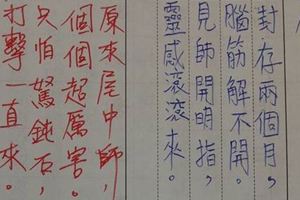 封存兩個月，
腦筋解不開。
見師開明指，
靈感滾滾來。
原來屋中師，
個個超厲害。
只怕駑鈍石，
打擊一直來。